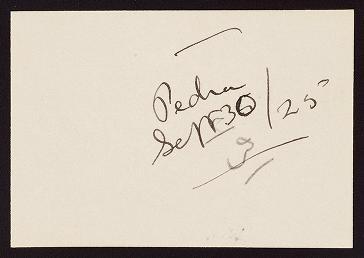 Pedra
Sept 30/25
3